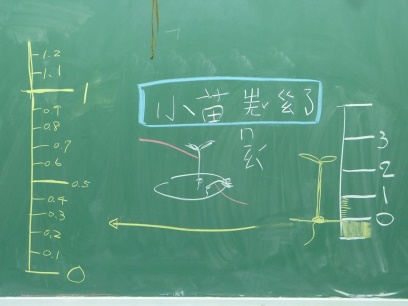 1.2
1.1
1
0.9
0.8
0.7
0.6
0.5
0.4
0.3
0.2
0.1
0
小苗
3
2
1
0